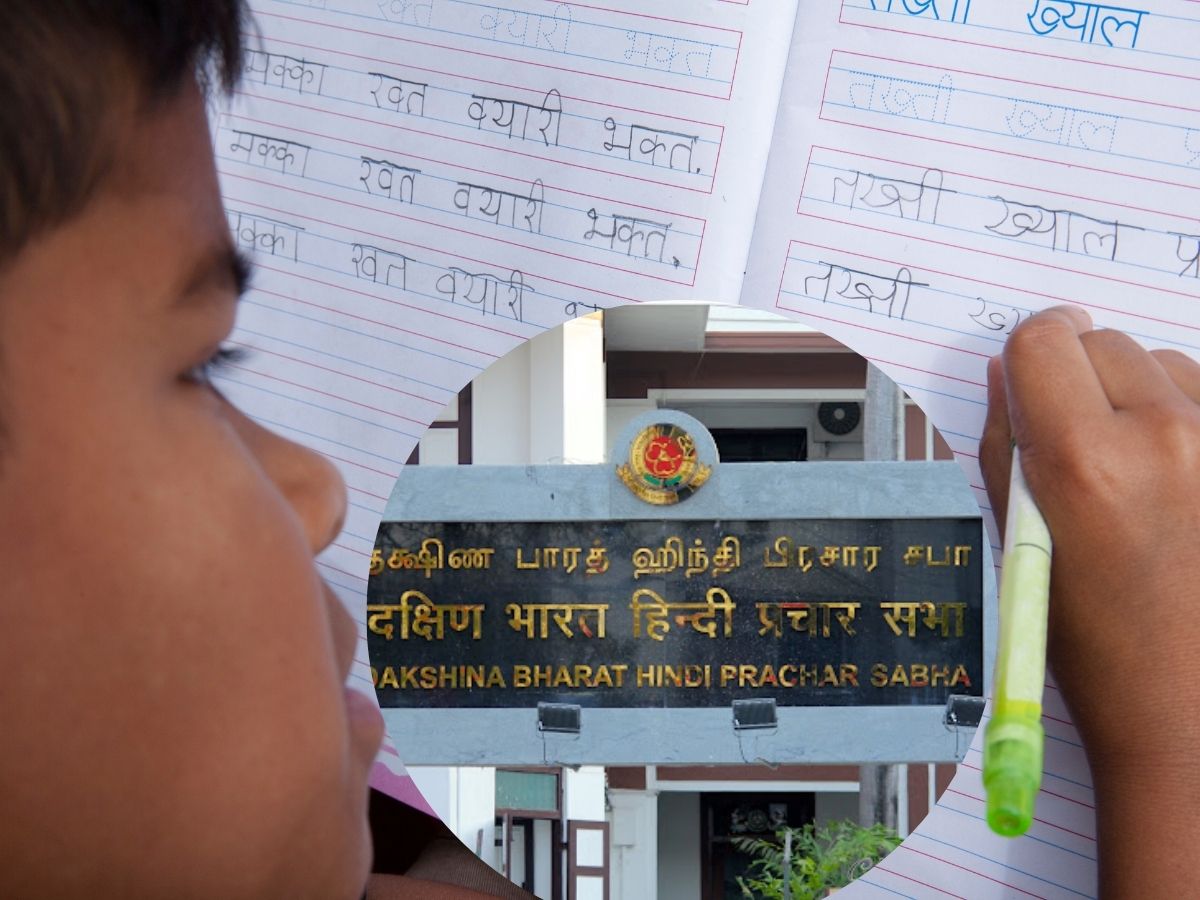 रक्त क्यारी भक्त
मक्का रक्त क्यारी भक्त.
मक्का रक्त क्यारी भक्त.
मक्का रक्त क्यारी
तख्ती ख्याल
तख्ती ख्याल
तख्ती ख्याल
तख्ती
தக்ஷிண பாரத் ஹிந்தி பிரசார சபா
दक्षिण भारत हिन्दी प्रचार सभा
DAKSHINA BHARAT HINDI PRACHAR SABHA